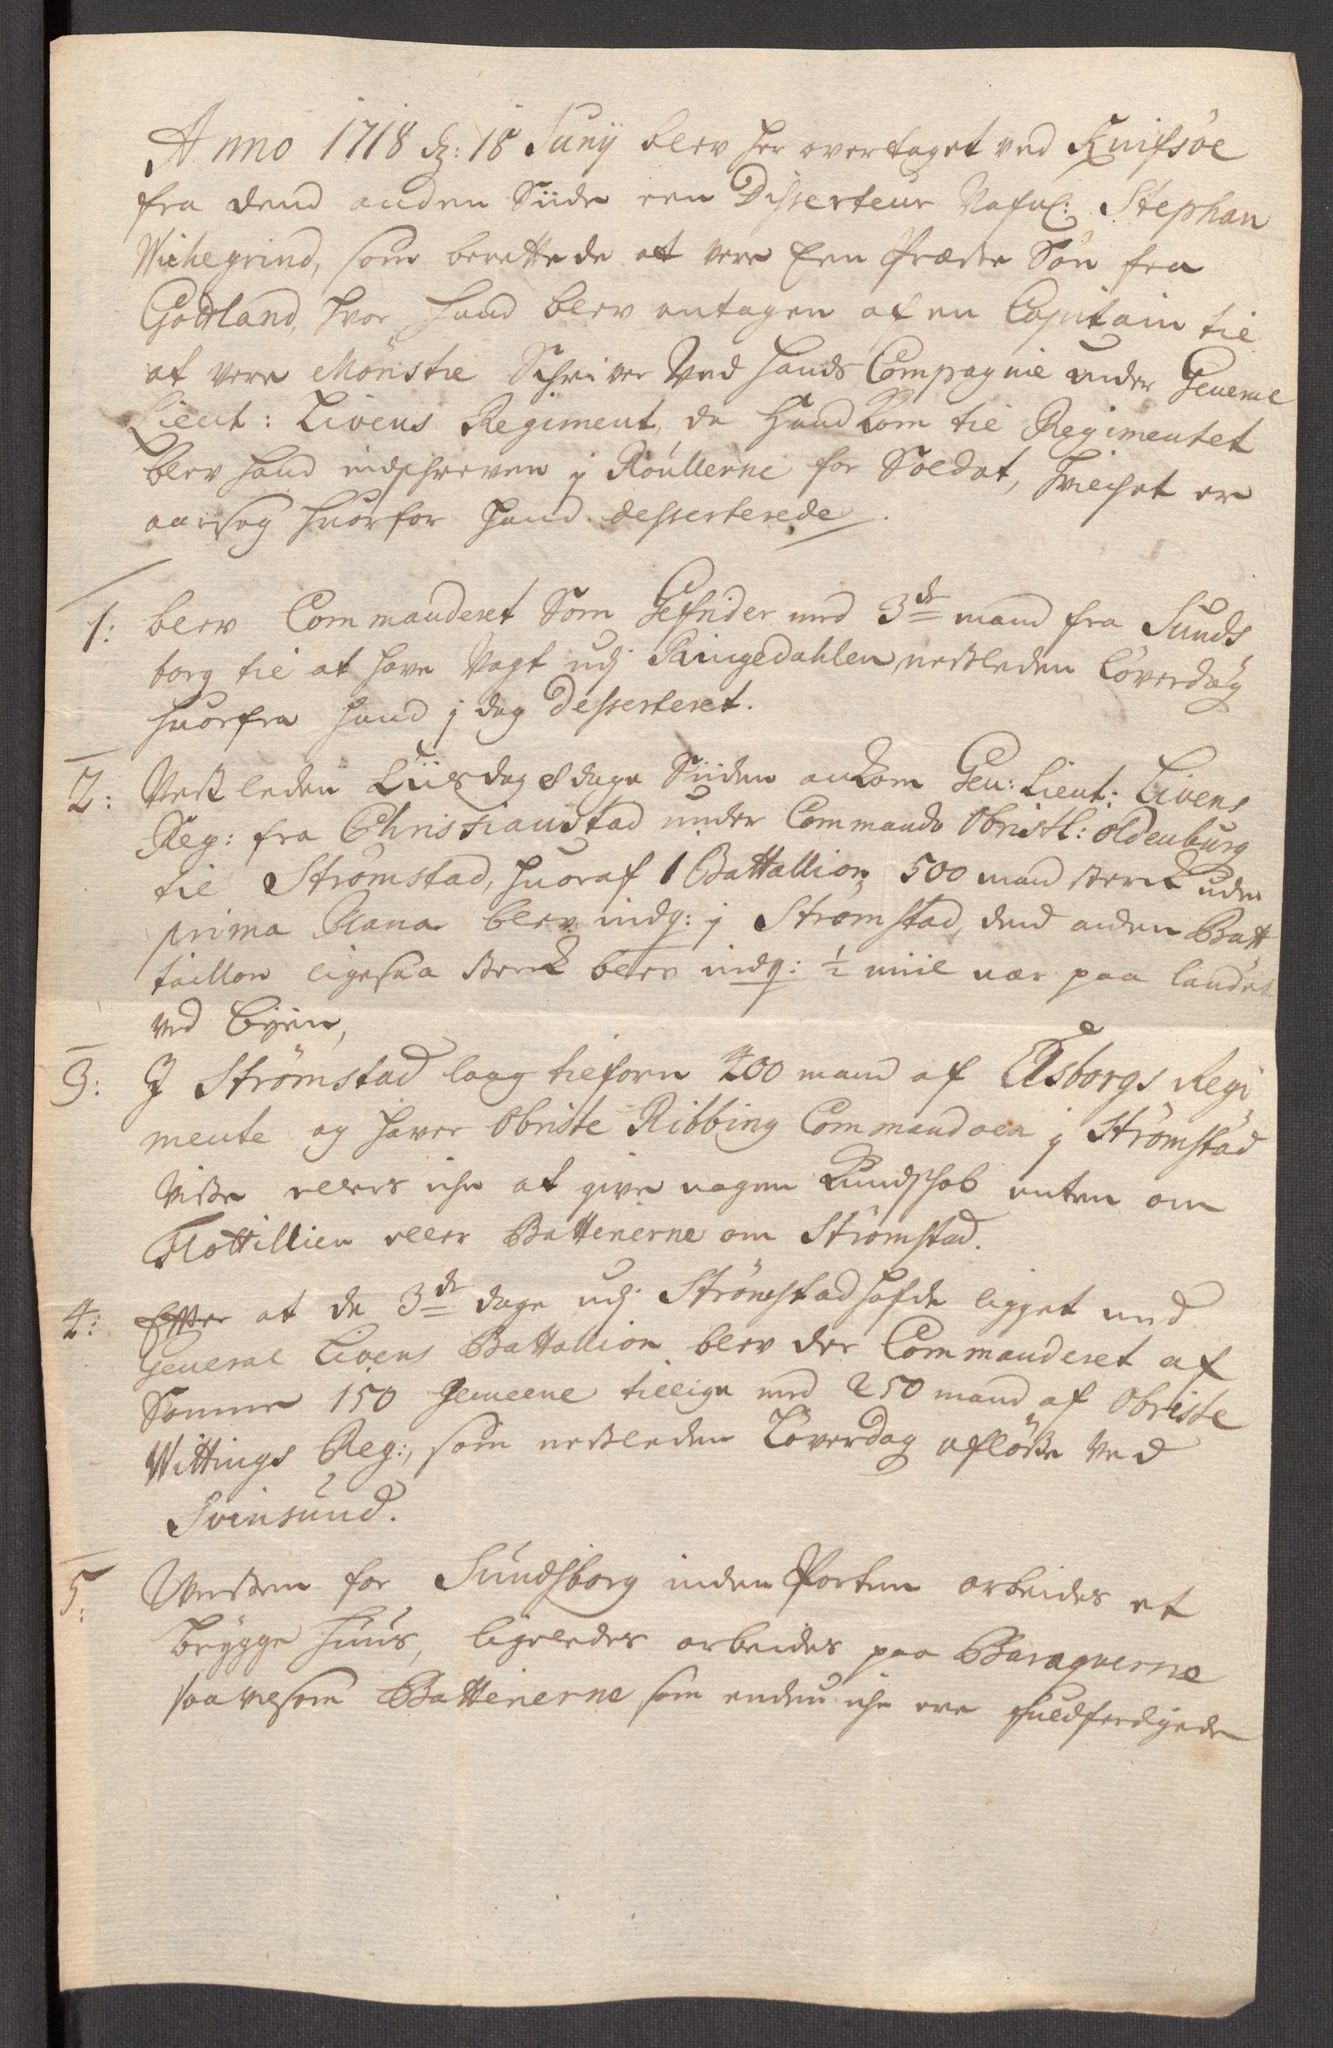 Anno 1718 d: 18 Junij blev her overtaget ved Knifsöe
fra dend anden Siide een Disserteur Nafnl: Stephan
Wichegrind, som berettede at vere Een Præste Sön fra
Gottland, hvor hand blev antagen af en Capitain til
at vere Mönster Schriver Ved hands Compagnie under General
Lieut: Livens Regiment, da Hand kom til Regimentet
blev hand indschreven j Röullerne for Soldat, hvilchet er
aarsag huorfor hand desserterede.
1: blev Commanderet Som Gefrider med 3de mand fra Sunds
borg til at have Vagt udj Ringedahlen nestleden Löverdag
huorfra hand j dag Desserteret.
2: Nestleden Tiisdag 8 dage Siiden ankom Gen: Lieut: Livens
Reg: fra Christianstad under Commando Obristl: Oldenburg
til Strömstad, huoraf 1 Battallion 500 mand sterck uden
prima Plana blev indq: j Strömstad, dend anden Batt
taillon ligesaa sterck blev indq: ½ miil nær paa landet
ved Byen,
3: J Strömstad laag tilforn 400 mand af Elfsborgs Regi
mente og haver Obriste Ribbing Commandoen j Strömstad
Viste ellers iche at give nogen Kundschab enten om
Flottillien eller Batterierne om Strömstad.
4: Efter at de 3de dage udj Strömstad hafde ligget med
General Livens Battallion blev der Commanderet af
Samme 150 Gemeene tillige med 250 mand af Obriste
Wittings Reg:, som nestleden Löverdag aflöste Ved
Svinsund.
5: Westen for Sundsborg inden Porten arbeides et
brygge huus, ligeledes arbeides paa Baraquerne
saavelsom Batterierne som endnu iche ere fuldferdigede